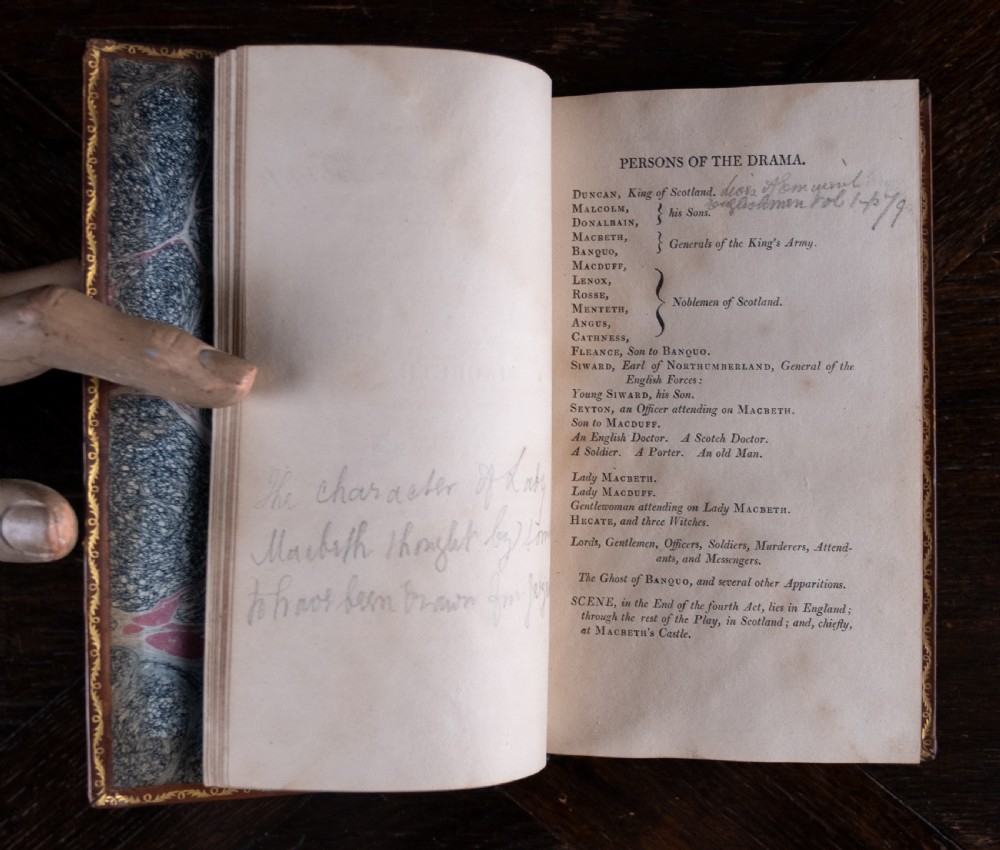 The character of Lady
Macbeth thought by
to have been drawn
PERSONS OF THE DRAMA.
DUNCAN, King of Scotland.
Englishmen Vol 1 p 79
MALCOLM,
DONALBAIN,
his Sons.
MACBETH,
BANQUO,
Generals of the King's Army.
MACDUFF,
LENOX,
ROSSE,
MENTETH,
ANGUS,
CATHNESS,
Noblemen of Scotland.
FLEANCE, Son to BANQUO.
SIWARD, Earl of NORTHUMBERLAND, General of the
English Forces:
Young SIWARD, his Son.
SEYTON, an Officer attending on MACBETH.
Son to MACDUFF.
An English Doctor. A Scotch Doctor.
A Soldier. A Porter. An old Man.
Lady MACBETH.
Lady MACDUFF.
Gentlewoman attending on Lady MACBETH.
HECATE, and three Witches.
Lords, Gentlemen, Officers, Soldiers, Murderers, Attend-
ants, and Messengers.
The Ghost of BANQUO, and several other Apparitions.
SCENE, in the End of the fourth Act, lies in England;
through the rest of the Play, in Scotland; and, chiefly,
at MACBETH's Castle.